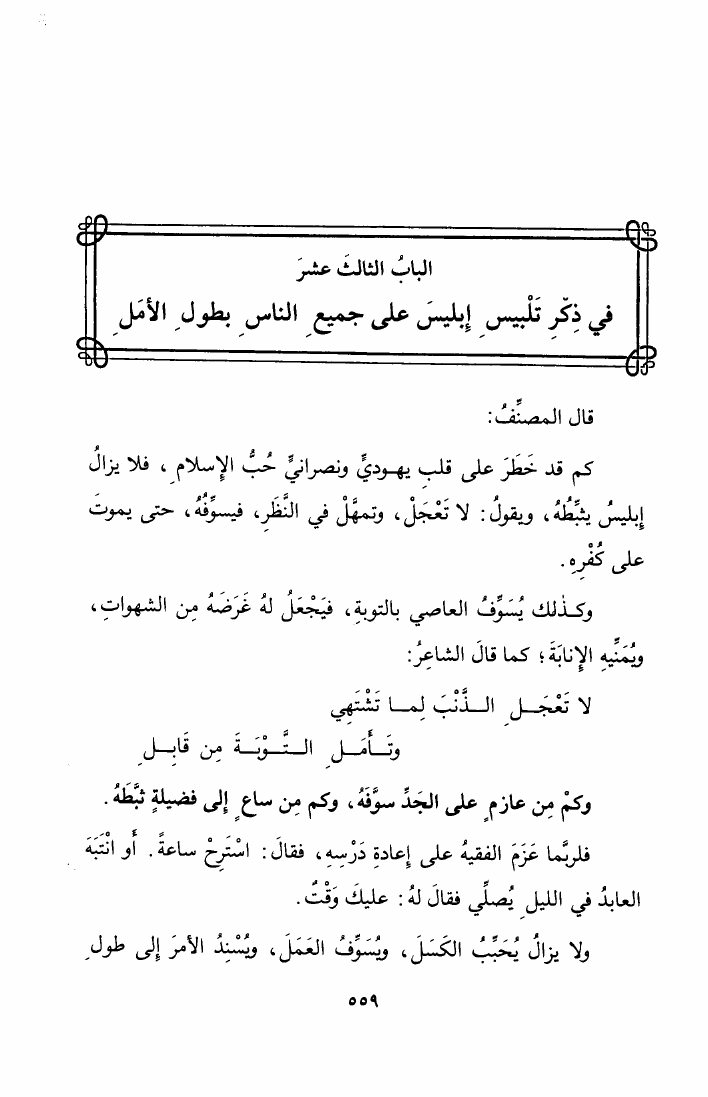 البابُ الثالثَ عشرَ
في ذِكْرِ تَلْبيسِ إبليسَ على جميعِ الناسِ بطولِ الأمَلِ
قال المصنِّفُ:
كم قد خَطَرَ على قلبِ يهوديٍّ ونصرانيٍّ حُبُّ الإسلامِ، فلا يزالُ
إبليسُ يثبِّطُهُ، ويقولُ: لا تَعْجَلْ، وتمهَّلْ في النَّظَرِ، فيسوِّفُهُ، حتى يموتَ
على كُفْرِهِ.
وكذلك يُسَوِّفُ العاصي بالتوبةِ، فيَجْعَلُ لهُ غَرَضَهُ مِن الشهواتِ،
ويُمَنِّيهِ الإنابَةَ؛ كما قالَ الشاعِرُ:
لا تَعْجَلِ الذَّنْبَ لِما تَشْتَهِي
وتَأمَلِ التَّوْبَةَ مِن قابِلِ
وكمْ مِن عازمٍ على الجَدِّ سوَّفَهُ، وكم مِن ساعٍ إلى فضيلةٍ ثبَّطَهُ.
فلربَّما عَزَمَ الفقيهُ على إعادةِ دَرْسِهِ، فقالَ: اسْتَرِحْ ساعةً. أو انْتَبَهَ
العابدُ في الليلِ يُصلِّي فقالَ لهُ: عليكَ وَقْتٌ.
ولا يزالُ يُحَبِّبُ الكَسَلَ، ويُسَوِّفُ العَمَلَ، ويُسْنِدُ الأمرَ إلى طولِ
٥٥٩